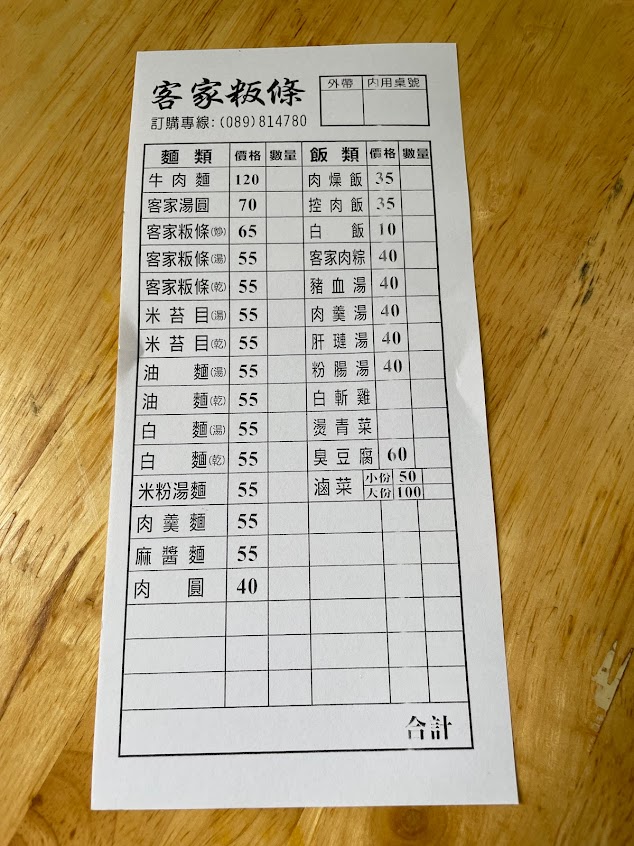 客家粄條
訂購專線:(089)814780
外帶 內用桌號
麵類 價格 數量 飯類 價格 數量
牛肉麵 120 肉燥飯 35
客家湯圓 70 控肉飯 35
客家粄條(炒) 65 白飯 10
客家粄條(湯) 55 客家肉粽 40
客家粄條(乾) 55 豬血湯 40
米苔目(湯) 55 肉羹湯 40
米苔目(乾) 55 肝璉湯 40
油麵(湯) 55 粉腸湯 40
油麵(乾) 55 白斬雞
白麵(湯) 55 燙青菜
白麵(乾) 55 臭豆腐 60
米粉湯麵 55 滷菜 小份 50
大份 100
肉羹麵 55
麻醬麵 55
肉圓 40
合計